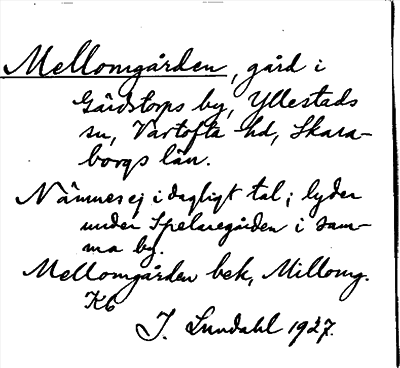 Mellomgården, gård i
Gärdstorps by, Yllestads
sn, Vartofta hd, Skara-
borgs län.
Nämnes ej i dagligt tal; lyder
under Spelaregården i sam-
ma by.
Mellomgården bek, Millomg.
K6
I. Lundahl 1927.